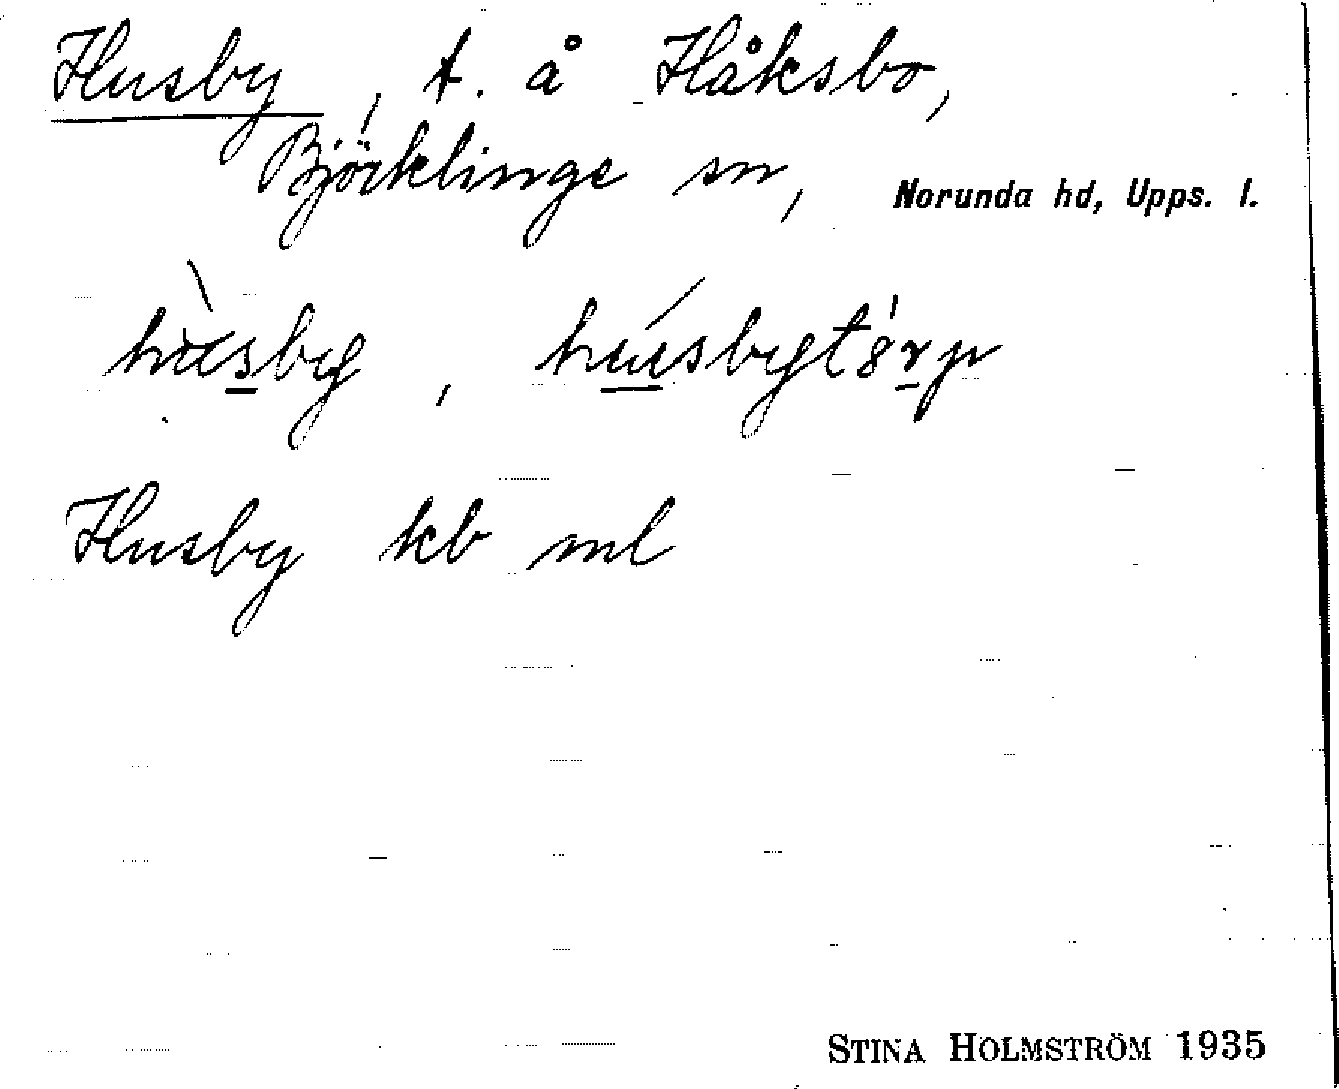 Husby, t. å Håksbo,
Björklinge sn, Norunda hd, Upps. l.
hùsby, húsbytórp
Husby kb ml
STINA HOLMSTRÖM 1935